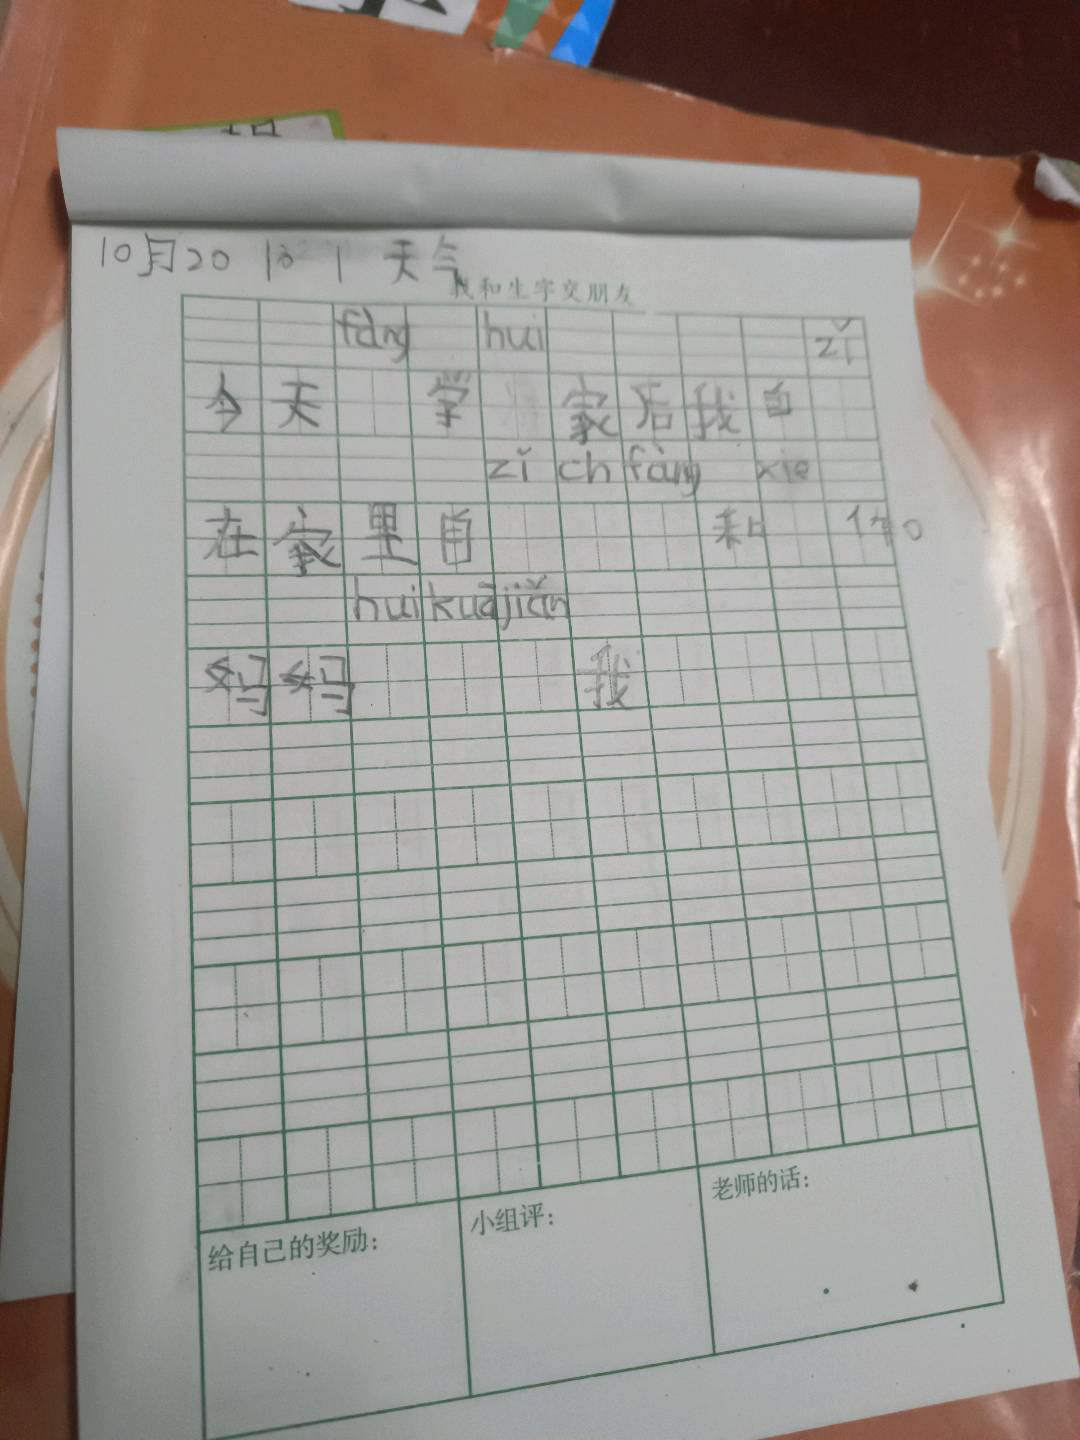 10月20 天气
我和生字交朋友
fàng hui zǐ
今天 学 家后我自
zǐ ch fàng xie
在家里自 和 作。
hui kuā jiǎn
妈妈 我
给自己的奖励:
小组评:
老师的话: